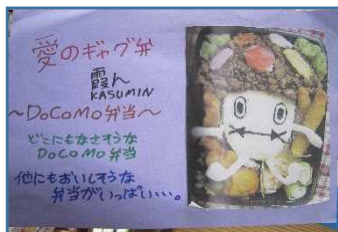 愛のギャグ弁
霞ん
KASUMIN
～DoCoMo弁当～
どこにもなさそうな
DoCoMo弁当
他にもおいしそうな
弁当がいっぱい…。